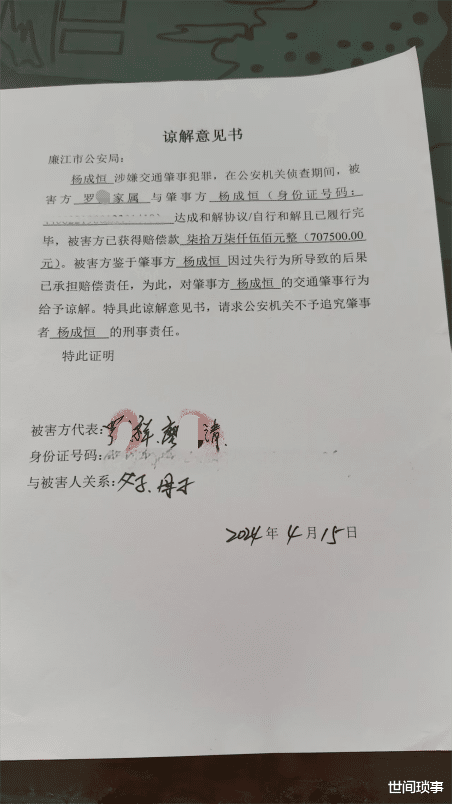 谅解意见书
廉江市公安局：
杨成恒 涉嫌交通肇事犯罪，在公安机关侦查期间，被
害方 罗 家属 与肇事方 杨成恒（身份证号码：
达成和解协议/自行和解且已履行完
毕，被害方已获得赔偿款 柒拾万柒仟伍佰元整（707500.00
元）。被害方鉴于肇事方 杨成恒 因过失行为所导致的后果
已承担赔偿责任，为此，对肇事方 杨成恒 的交通肇事行为
给予谅解。特具此谅解意见书，请求公安机关不予追究肇事
者 杨成恒 的刑事责任。
特此证明
被害方代表：
身份证号码：
与被害人关系：父子、母子
2024 年 4 月 15 日
世间琐事